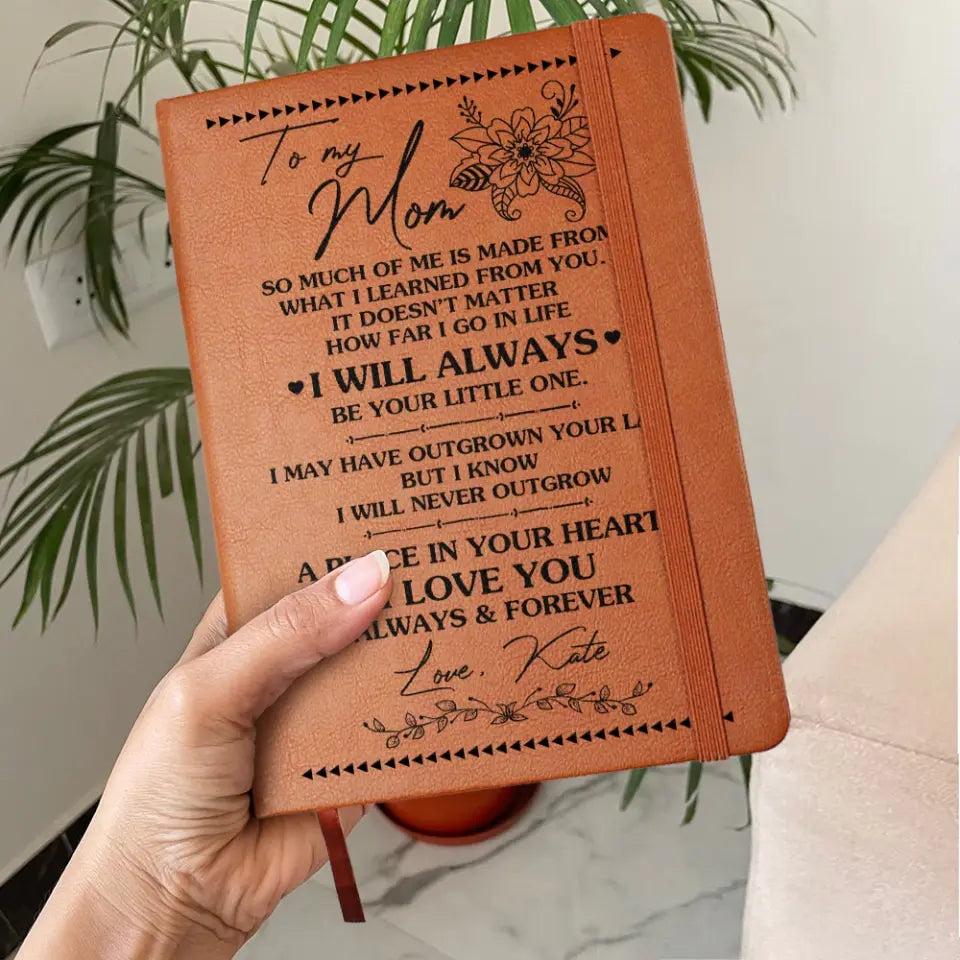 To my
Mom
SO MUCH OF ME IS MADE FROM
WHAT I LEARNED FROM YOU.
IT DOESN'T MATTER
HOW FAR I GO IN LIFE
I WILL ALWAYS
BE YOUR LITTLE ONE.
I MAY HAVE OUTGROWN YOUR
BUT I KNOW
I WILL NEVER OUTGROW
A IN YOUR HEART
LOVE YOU
ALWAYS & FOREVER
Love, Kate